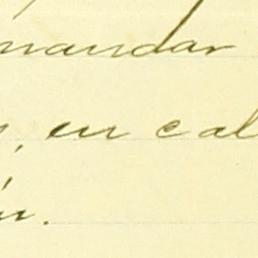 mandar
, en cal
ín.